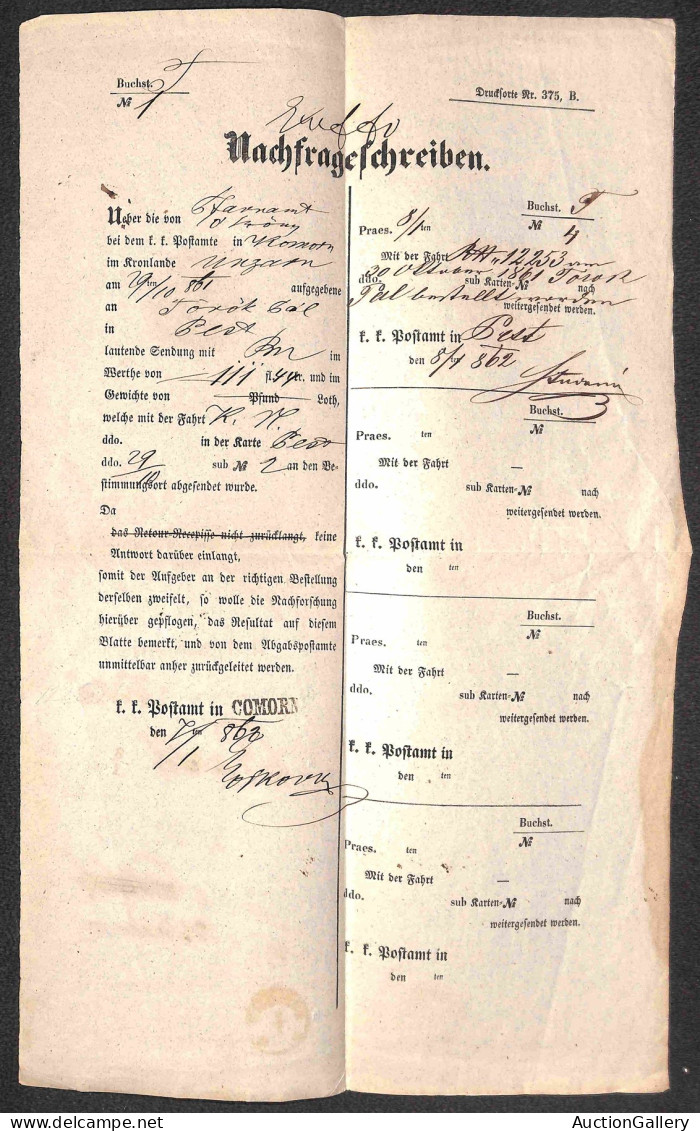 Buchst. T
№ 1
Drucksorte Nr. 375, B.
Nachfrageschreiben.
Ueber die von Pfarramt
bei dem k. k. Postamte in Komorn
im Kronlande Ungarn
am 29ten/10 861 aufgegebene
an Török Pál
in Pest
lautende Sendung mit im
Werthe von 111 fl. 44 kr. und im
Gewichte von Pfund Loth,
welche mit der Fahrt K. N.
ddo. in der Karte Pest
ddo. 29/10 sub № 2 an den Be-
stimmungsort abgesendet wurde.
Da
das Retour-Recepisse nicht zurücklangt, keine
Antwort darüber einlangt,
somit der Aufgeber an der richtigen Bestellung
derselben zweifelt, so wolle die Nachforschung
hierüber gepflogen, das Resultat auf diesem
Blatte bemerkt, und von dem Abgabspostamte
unmittelbar anher zurückgeleitet werden.
k. k. Postamt in COMORN
den 7/1ten 862
Buchst. T
№ 4
Praes. 8/1ten
Mit der Fahrt 12253 am
ddo. 30 Oktober 1861 Török sub Karten-№ nach
Pál bestellt worden
weitergesendet werden.
k. k. Postamt in Pest
den 8/1 862
Buchst.
№
Praes. ten
Mit der Fahrt —
ddo. sub Karten-№ nach
weitergesendet werden.
k. k. Postamt in
den ten
Buchst.
№
Praes. ten
Mit der Fahrt —
ddo. sub Karten-№ nach
weitergesendet werden.
k. k. Postamt in
den ten
Buchst.
№
Praes. ten
Mit der Fahrt —
ddo. sub Karten-№ nach
weitergesendet werden.
k. k. Postamt in
den ten
AuctionGallery